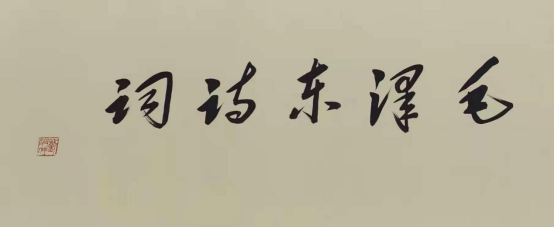 毛泽东诗词